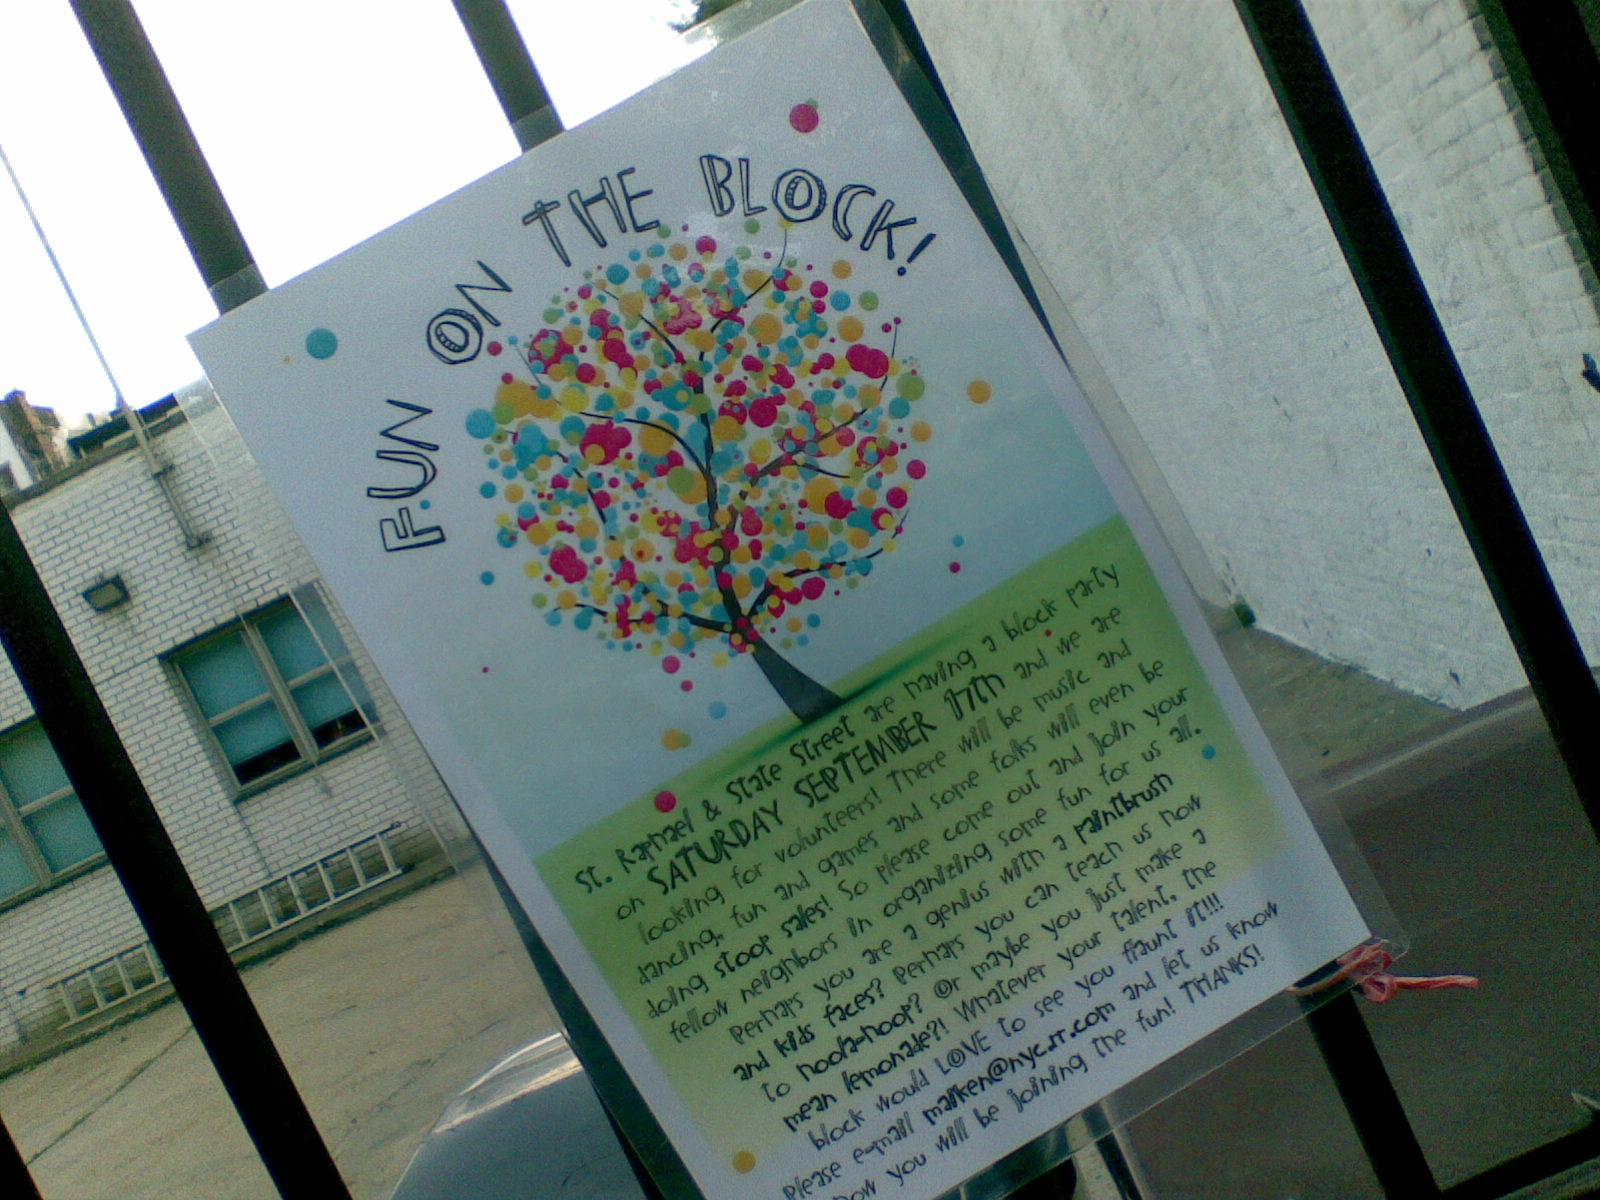 FUN ON THE BLOCK!
St. Raphael & State Street are having a block party
on SATURDAY SEPTEMBER 17TH and we are
looking for volunteers! There will be music and
dancing, fun and games and some folks will even be
doing stoop sales! So please come out and join your
fellow neighbors in organizing some fun for us all.
Perhaps you are a genius with a paintbrush
and kids faces? Perhaps you can teach us how
to hoola-hoop? Or maybe you just make a
mean lemonade?! Whatever your talent, the
block would LOVE to see you flaunt it!!!
Please e-mail maiken@nyc.rr.com and let us know
how you will be joining the fun! THANKS!